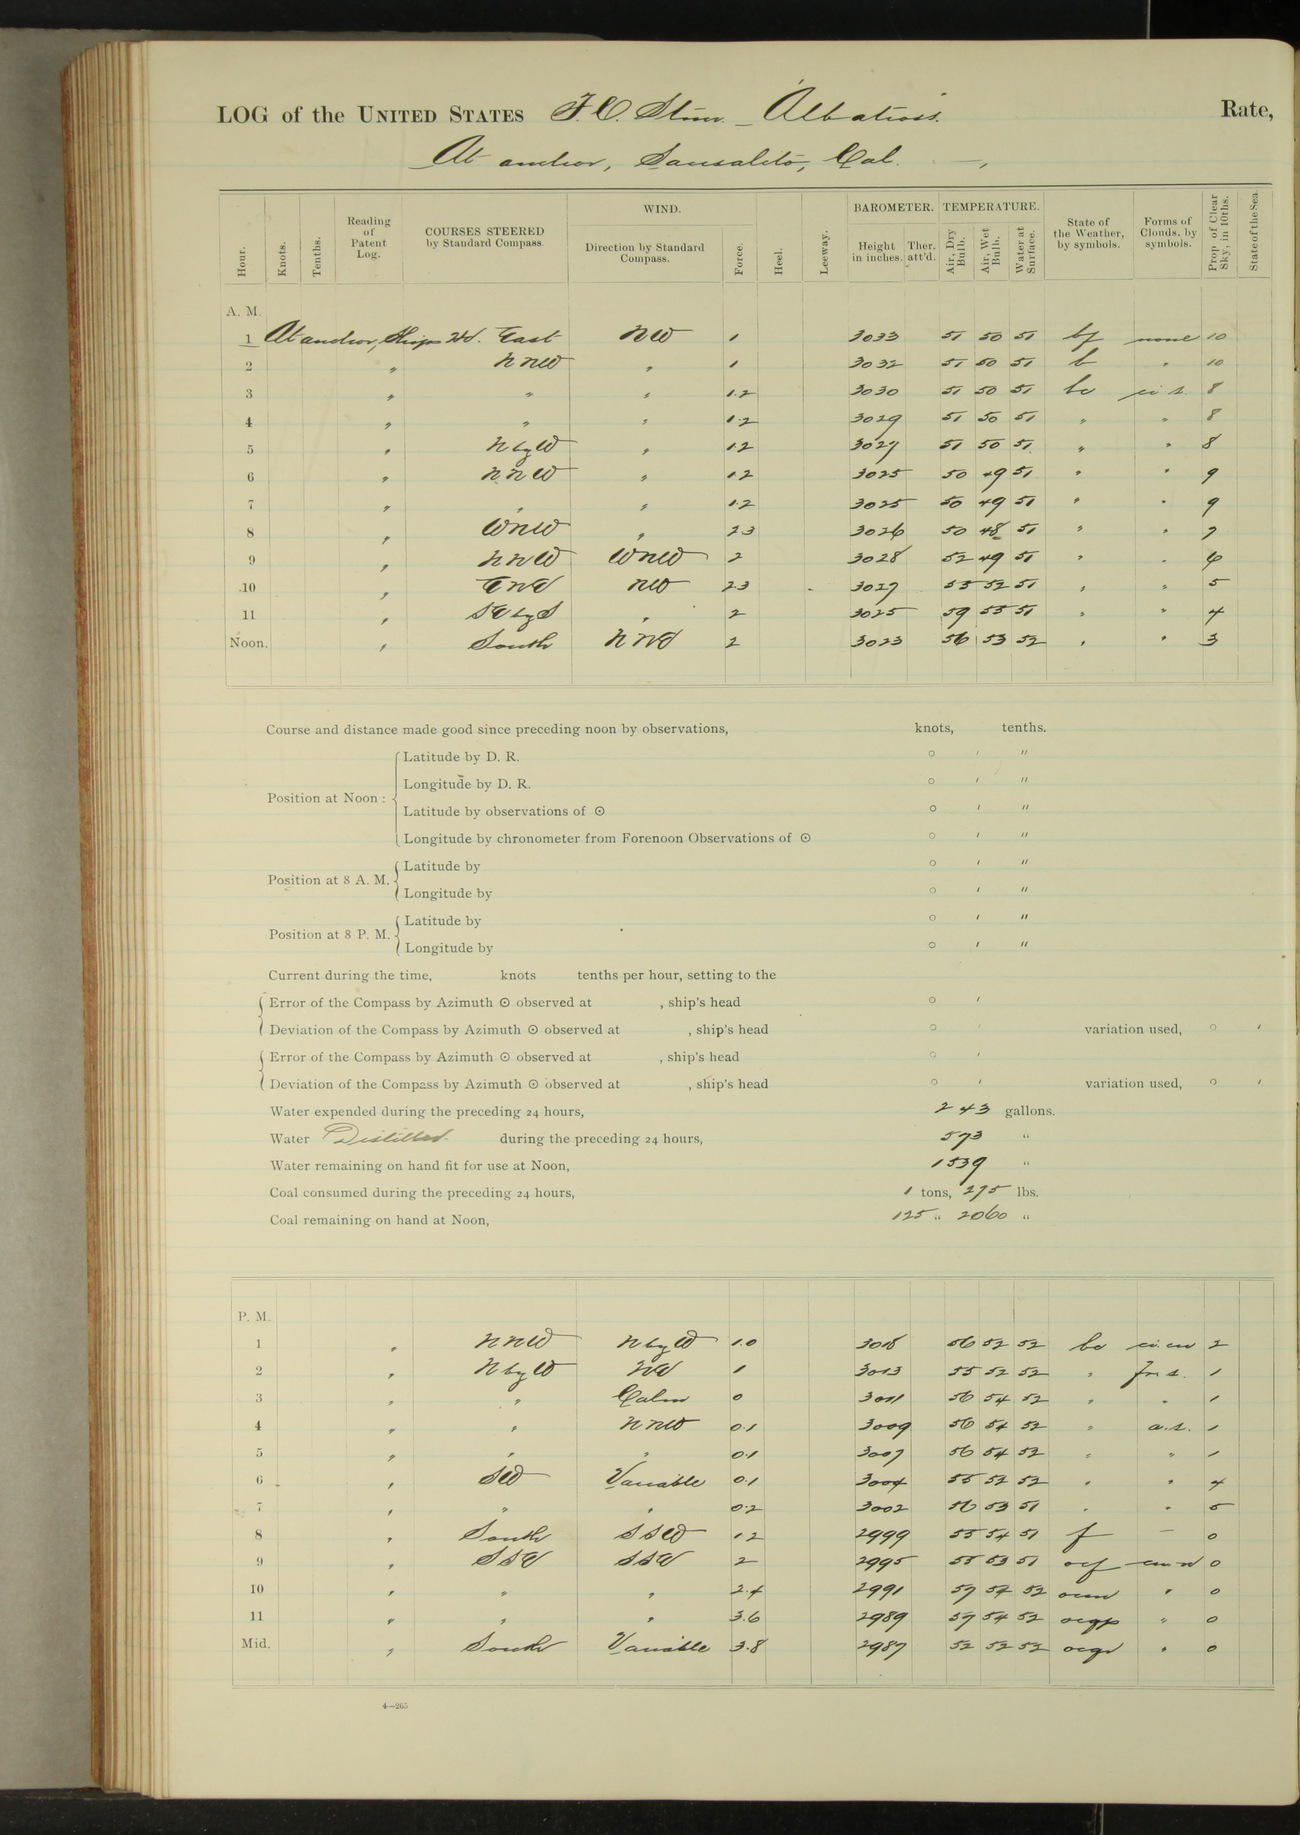 LOG of the UNITED STATES F.C. Stmr. Albatross. Rate,
At anchor, Sausalito, Cal.
Hour. Knots. Tenths. Reading of Patent Log. COURSES STEERED by Standard Compass. WIND. Direction by Standard Compass. Force. Heel. Leeway. BAROMETER. Height in inches. Ther. att'd. TEMPERATURE. Air, Dry Bulb. Air, Wet Bulb. Water at Surface. State of the Weather, by symbols. Forms of Clouds, by symbols. Prop. of Clear Sky, in 10ths. State of the Sea.
A. M.
1 At anchor, Ships Hd. East NW 1 3033 51 50 51 bf none 10
2 " NNW " 1 3032 51 50 51 b " 10
3 " " " 1.2 3030 51 50 51 bc ci.s. 8
4 " " " 1.2 3029 51 50 51 " " 8
5 " N by W " 1.2 3027 51 50 51 " " 8
6 " NNW " 1.2 3025 50 49 51 " " 9
7 " " " 1.2 3025 50 49 51 " " 9
8 " WNW " 2.3 3026 50 48 51 " " 7
9 " NNW WNW 2 3028 52 49 51 " " 6
10 " ENE NW 2.3 3027 55 52 51 " " 5
11 " SE by S " 2 3025 59 55 51 " " 4
Noon. " South NNE 2 3023 56 53 52 " " 3
Course and distance made good since preceding noon by observations, knots, tenths.
Position at Noon : Latitude by D. R. ° ′ ″
Longitude by D. R. ° ′ ″
Latitude by observations of ☉ ° ′ ″
Longitude by chronometer from Forenoon Observations of ☉ ° ′ ″
Position at 8 A. M. Latitude by ° ′ ″
Longitude by ° ′ ″
Position at 8 P. M. Latitude by ° ′ ″
Longitude by ° ′ ″
Current during the time, knots tenths per hour, setting to the
Error of the Compass by Azimuth ☉ observed at , ship's head ° ′
Deviation of the Compass by Azimuth ☉ observed at , ship's head ° ′ variation used, ° ′
Error of the Compass by Azimuth ☉ observed at , ship's head ° ′
Deviation of the Compass by Azimuth ☉ observed at , ship's head ° ′ variation used, ° ′
Water expended during the preceding 24 hours, 243 gallons.
Water Distilled during the preceding 24 hours, 573 "
Water remaining on hand fit for use at Noon, 1539 "
Coal consumed during the preceding 24 hours, 1 tons, 275 lbs.
Coal remaining on hand at Noon, 125 " 2060 "
P. M.
1 " NNW N by W 1.0 3018 56 52 52 bc ci.cu 2
2 " N by W NE 1 3013 55 52 52 " 1
3 " " Calm 0 3011 56 54 52 " " 1
4 " " NNW 0.1 3009 56 54 52 " a.s. 1
5 " " " 0.1 3007 56 54 52 " " 1
6 " SW Variable 0.1 3004 55 52 52 " " 4
7 " " " 0.2 3002 56 53 51 " " 5
8 " South SSW 1.2 2999 55 54 51 f — 0
9 " SSE SSE 2 2995 55 53 51 ocf cu-n 0
10 " " " 2.4 2991 57 54 52 ocm " 0
11 " " " 3.6 2989 57 54 52 ocgp " 0
Mid. " South Variable 3.8 2987 52 52 52 ocgr " 0
4—265